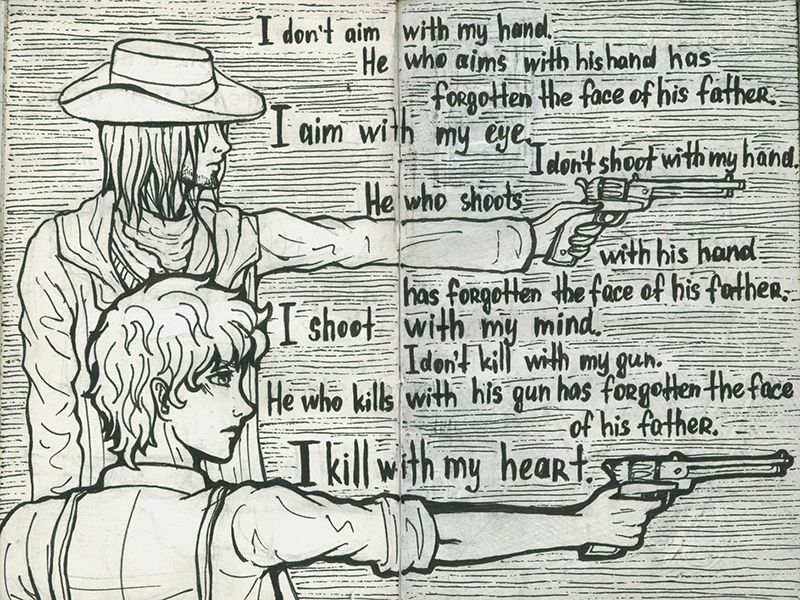 I don't aim with my hand.
He who aims with his hand has
forgotten the face of his father.
I aim with my eye.
I don't shoot with my hand.
He who shoots
with his hand
has forgotten the face of his father.
I shoot with my mind.
I don't kill with my gun.
He who kills with his gun has forgotten the face
of his father.
I kill with my heart.